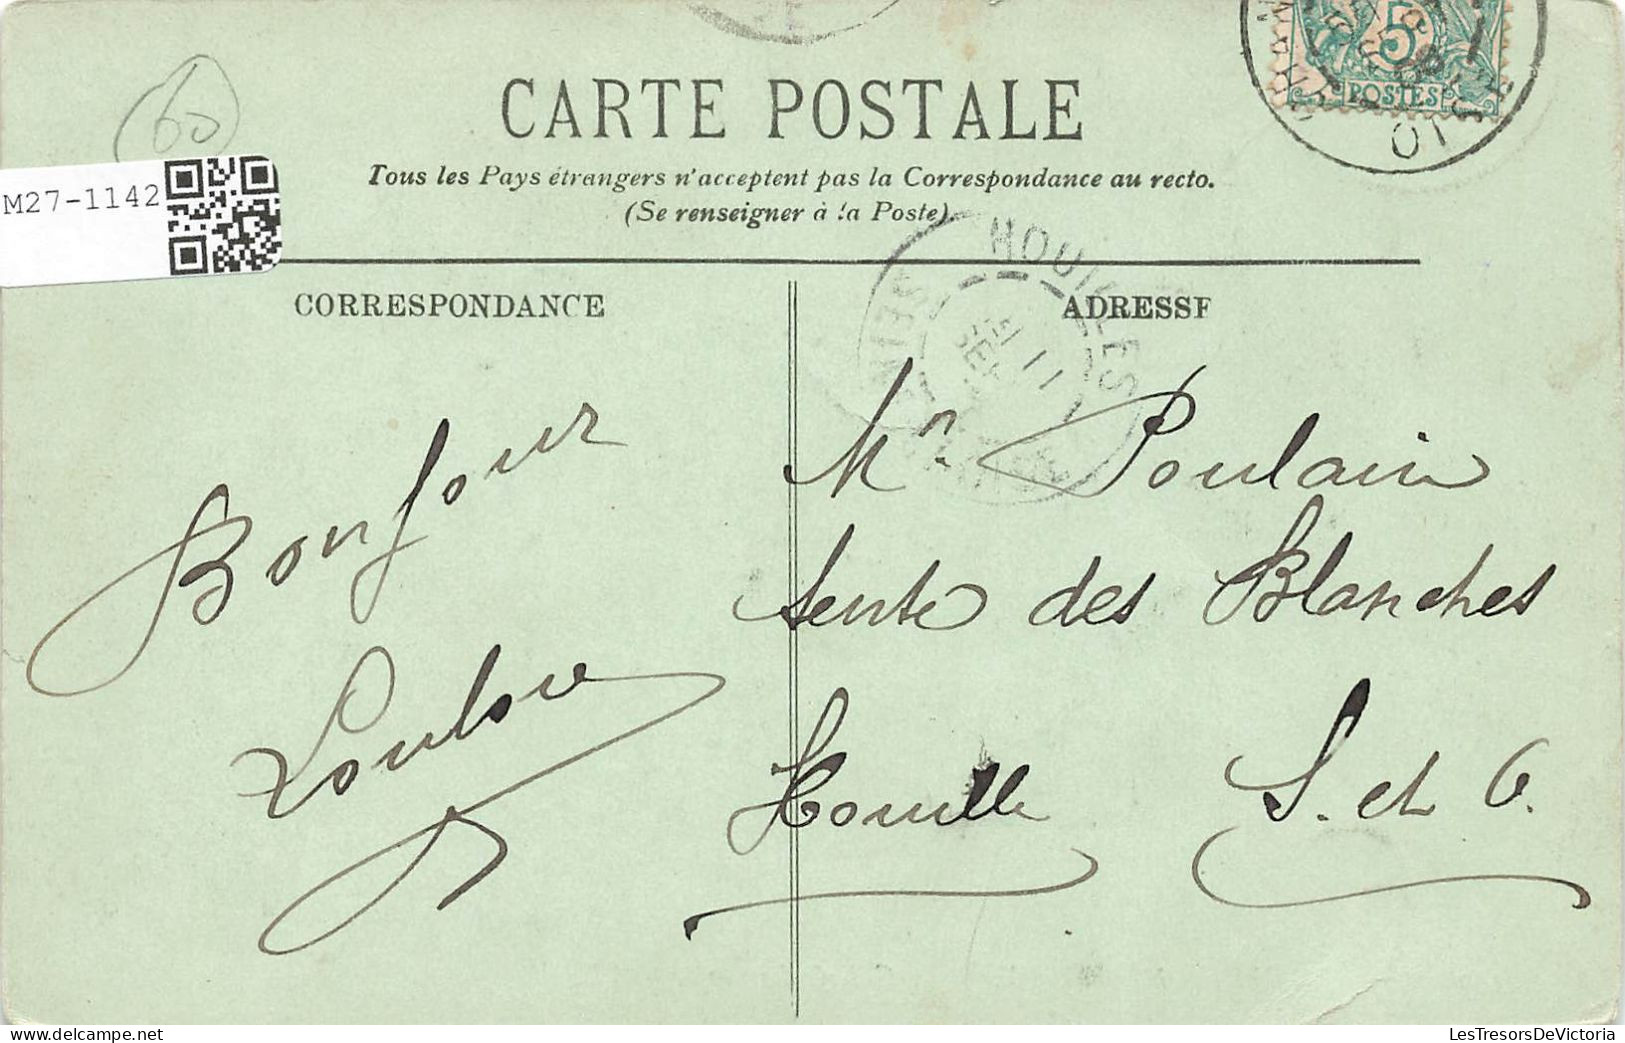 60
M27-1142
5
POSTES
CARTE POSTALE
Tous les Pays étrangers n'acceptent pas la Correspondance au recto.
(Se renseigner à la Poste).
HOUILLES
CORRESPONDANCE
ADRESSE
Bonjour
Loulou
Mr. Poulain
Sente des Blanches
Houille S. et O.
LesTresorsDeVictoria.com
delcampe.net